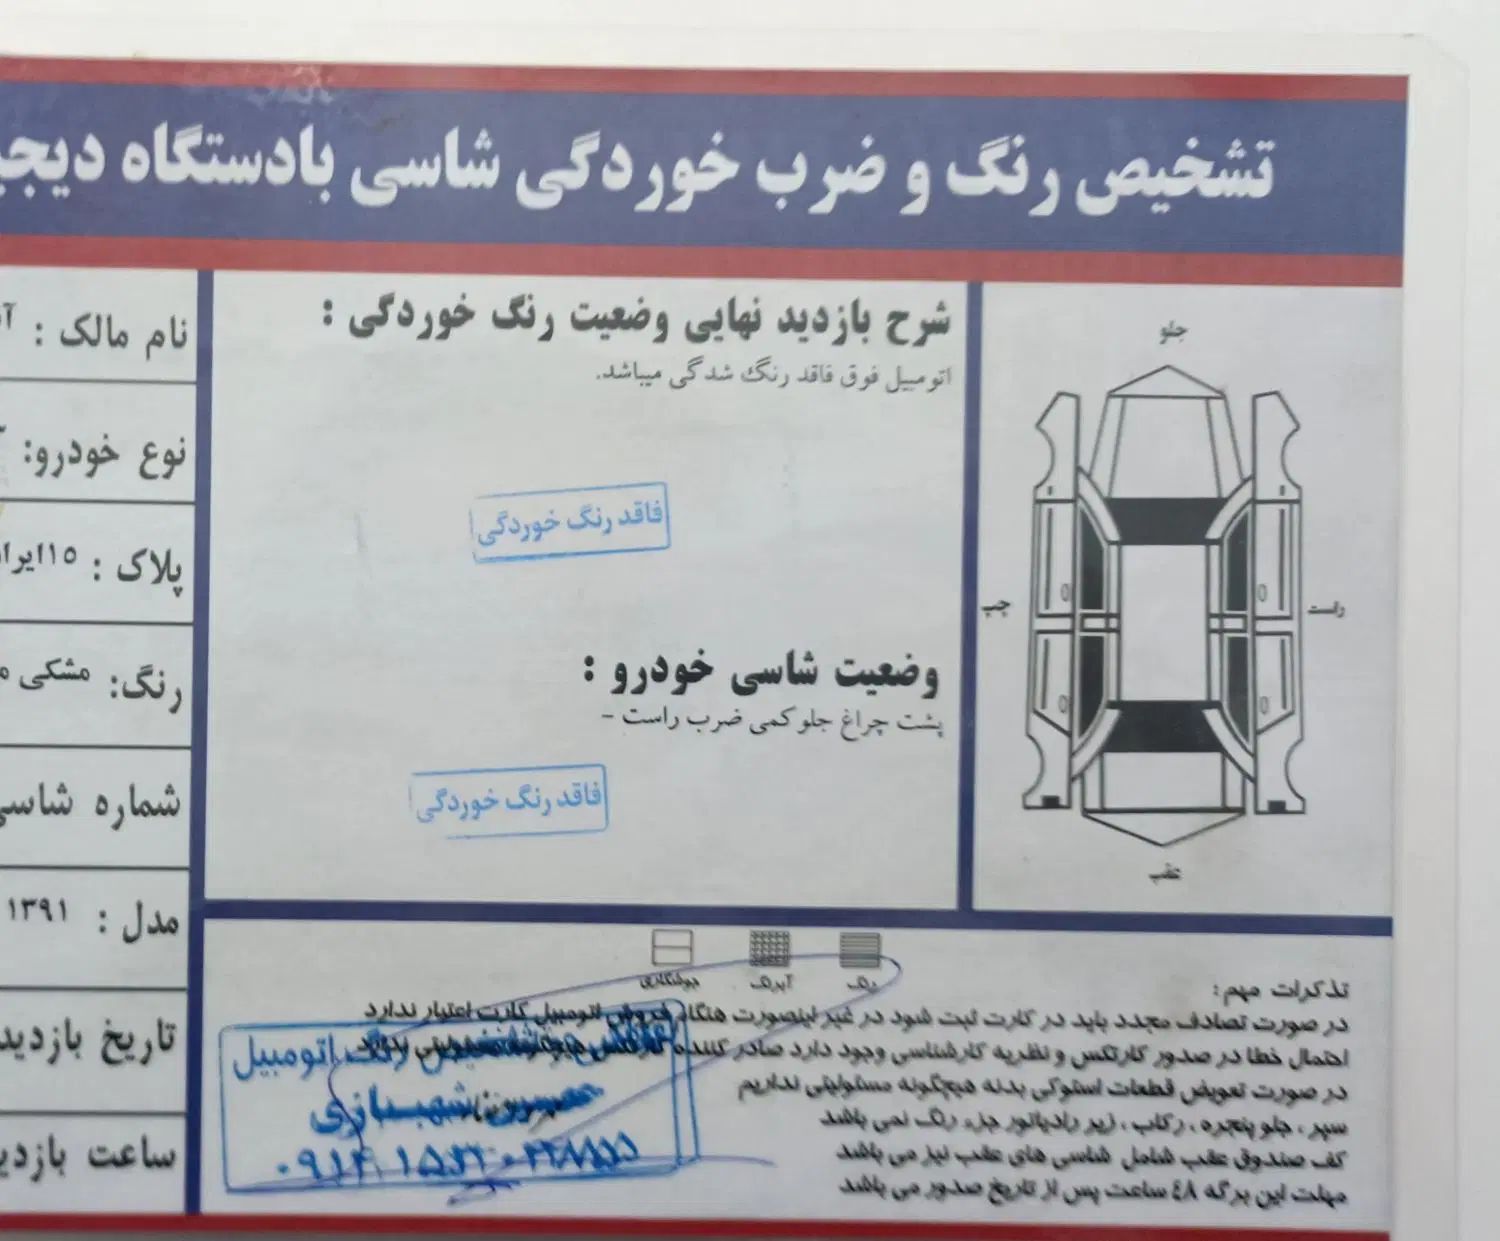 تشخیص رنگ و ضرب خوردگی شاسی بادستگاه دیجی
جلو
چپ
راست
عقب
شرح بازدید نهایی وضعیت رنگ خوردگی :
اتومبیل فوق فاقد رنگ شدگی میباشد.
فاقد رنگ خوردگی
وضعیت شاسی خودرو :
پشت چراغ جلو کمی ضرب راست -
فاقد رنگ خوردگی
نام مالک :
نوع خودرو:
پلاک : ۱۵ایرا
رنگ: مشکی م
شماره شاسی
مدل : ۱۳۹۱
تاریخ بازدید
ساعت بازدی
رنگ
آبرنگ
جوشکاری
تذکرات مهم:
در صورت تصادف مجدد باید در کارت ثبت شود در غیر اینصورت هنگام فروش اتومبیل کارت اعتبار ندارد
احتمال خطا در صدور کارتکس و نظریه کارشناسی وجود دارد صادر کننده کارتکس هیچگونه مسئولیتی ندارد
در صورت تعویض قطعات استوکی بدنه هیچگونه مسئولیتی نداریم
سپر ، جلو پنجره ، رکاب ، زیر رادیاتور جزء رنگ نمی باشد
کف صندوق عقب شامل شاسی های عقب نیز می باشد
مهلت این برگه ٤٨ ساعت پس از تاریخ صدور می باشد
رنگ اتومبیل
شهبازی